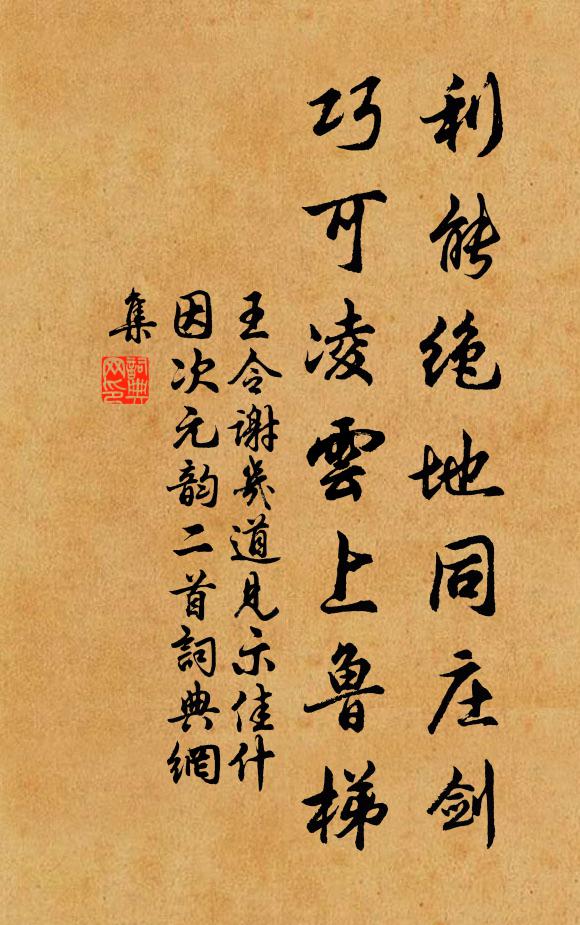 利能绝地同庄剑
巧可凌雲上鲁梯
王令谢幾道見示佳什
因次元韵二首詞典網
集
詞典
网印